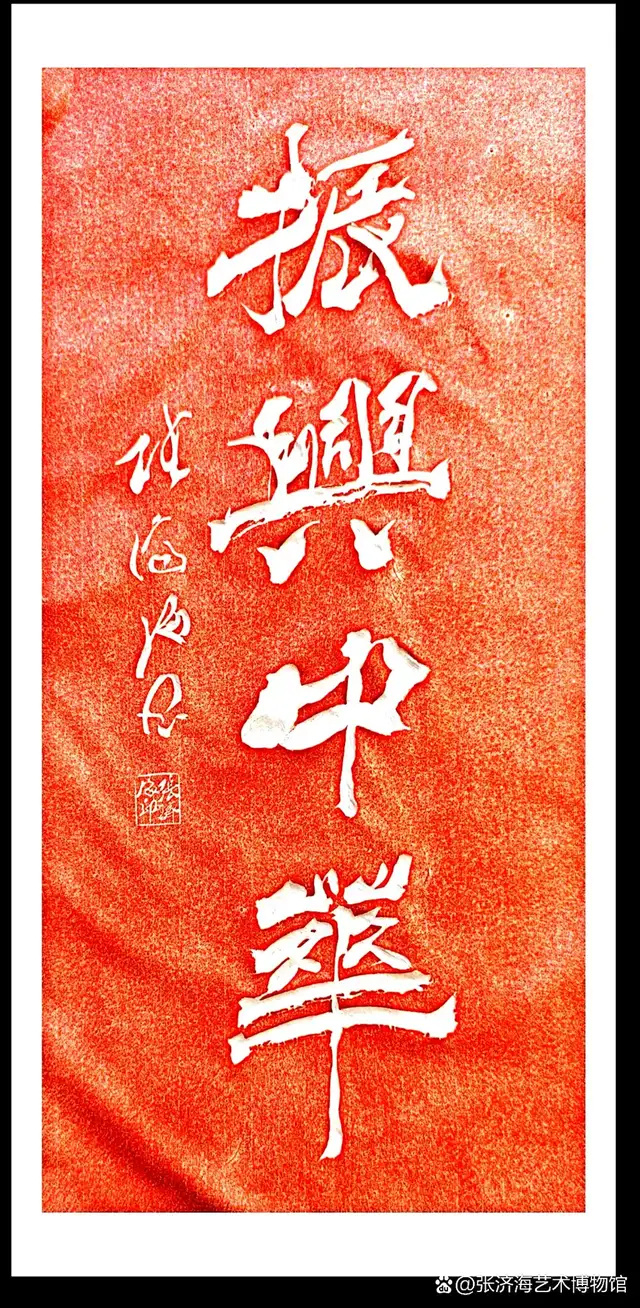 振興中華
张济海书
@张济海艺术博物馆